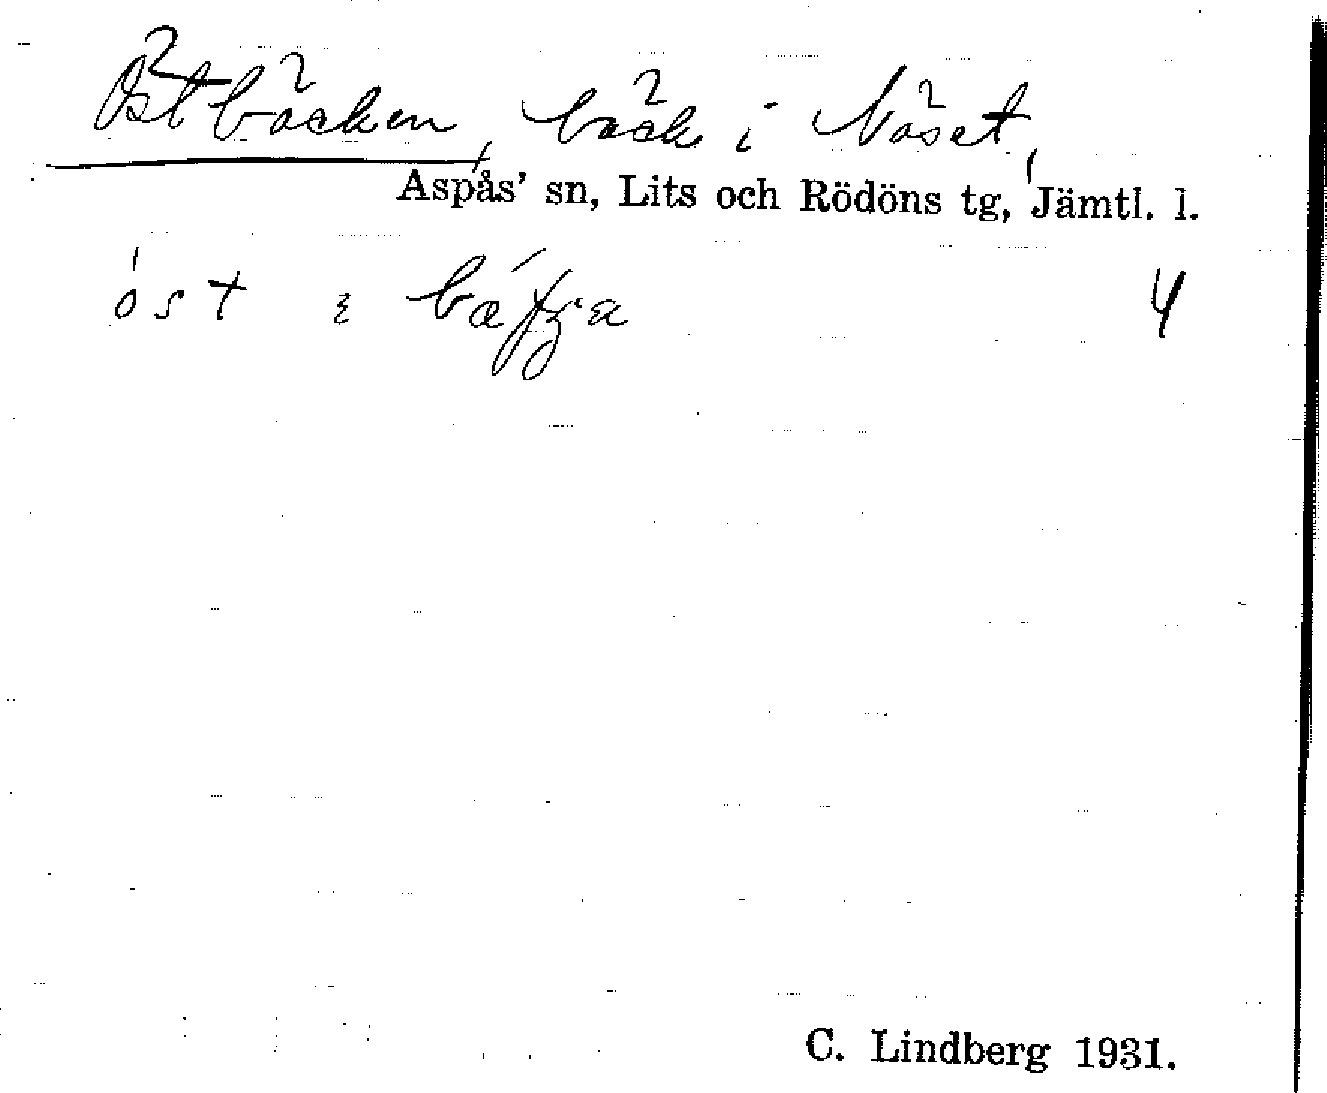 Östbäcken, bäck i Näset,
Aspås' sn, Lits och Rödöns tg, Jämtl. l.
öst 4
C. Lindberg 1931.